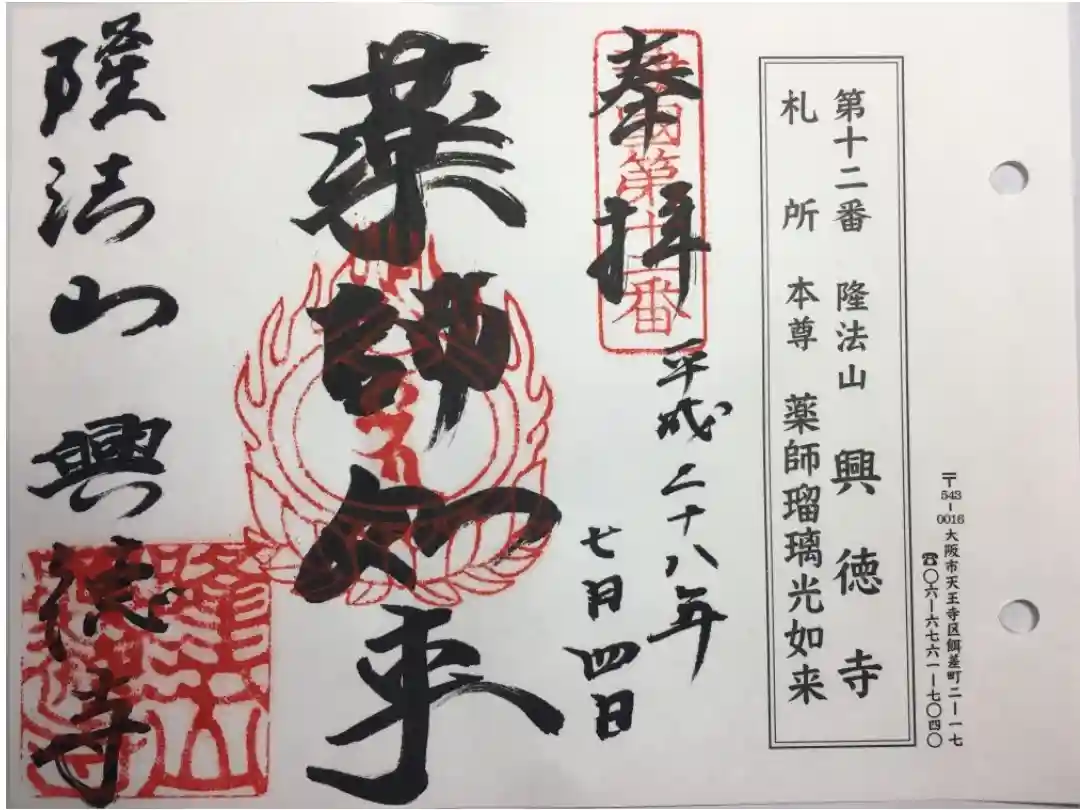 〒543-0016 大阪市天王寺区餌差町二ー一七
☎〇六ー六七六一ー七〇四〇
第十二番 隆法山 興徳寺
札所 本尊 薬師瑠璃光如来
奉拝
第十二番
平成二十八年
七月四日
薬師如来
隆法山興徳寺